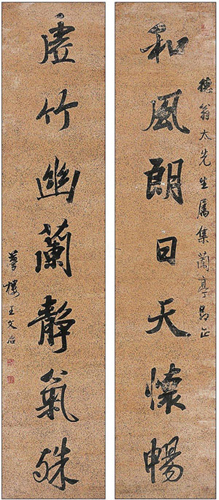 德翁大先生属集蘭亭即正
和風朗日天懷暢
虛竹幽蘭靜氣殊
夢樓王文治